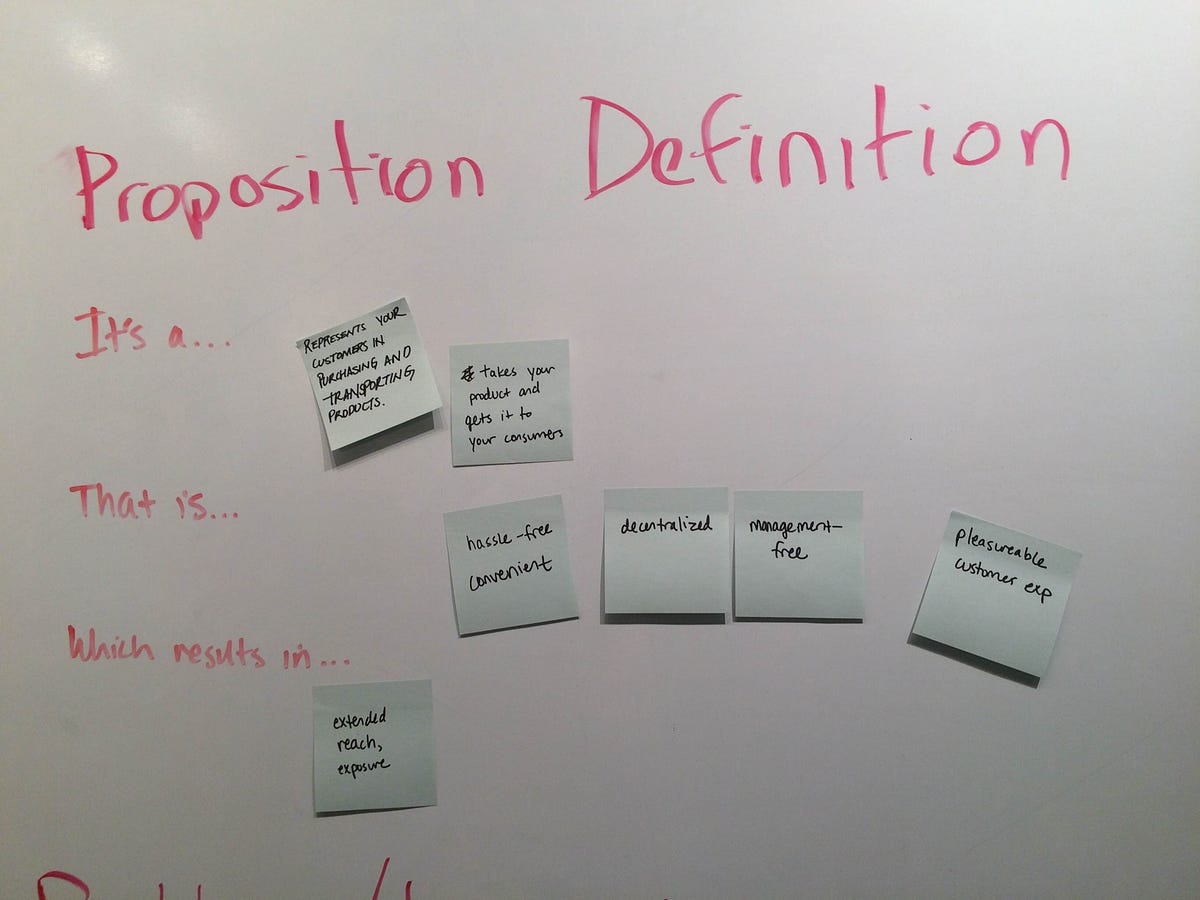 Proposition Definition
It's a...
REPRESENTS YOUR
CUSTOMERS IN
PURCHASING AND
TRANSPORTING
PRODUCTS.
takes your
product and
gets it to
your consumers
That is...
hassle-free
convenient
decentralized
management-
free
pleasureable
customer exp
Which results in...
extended
reach,
exposure